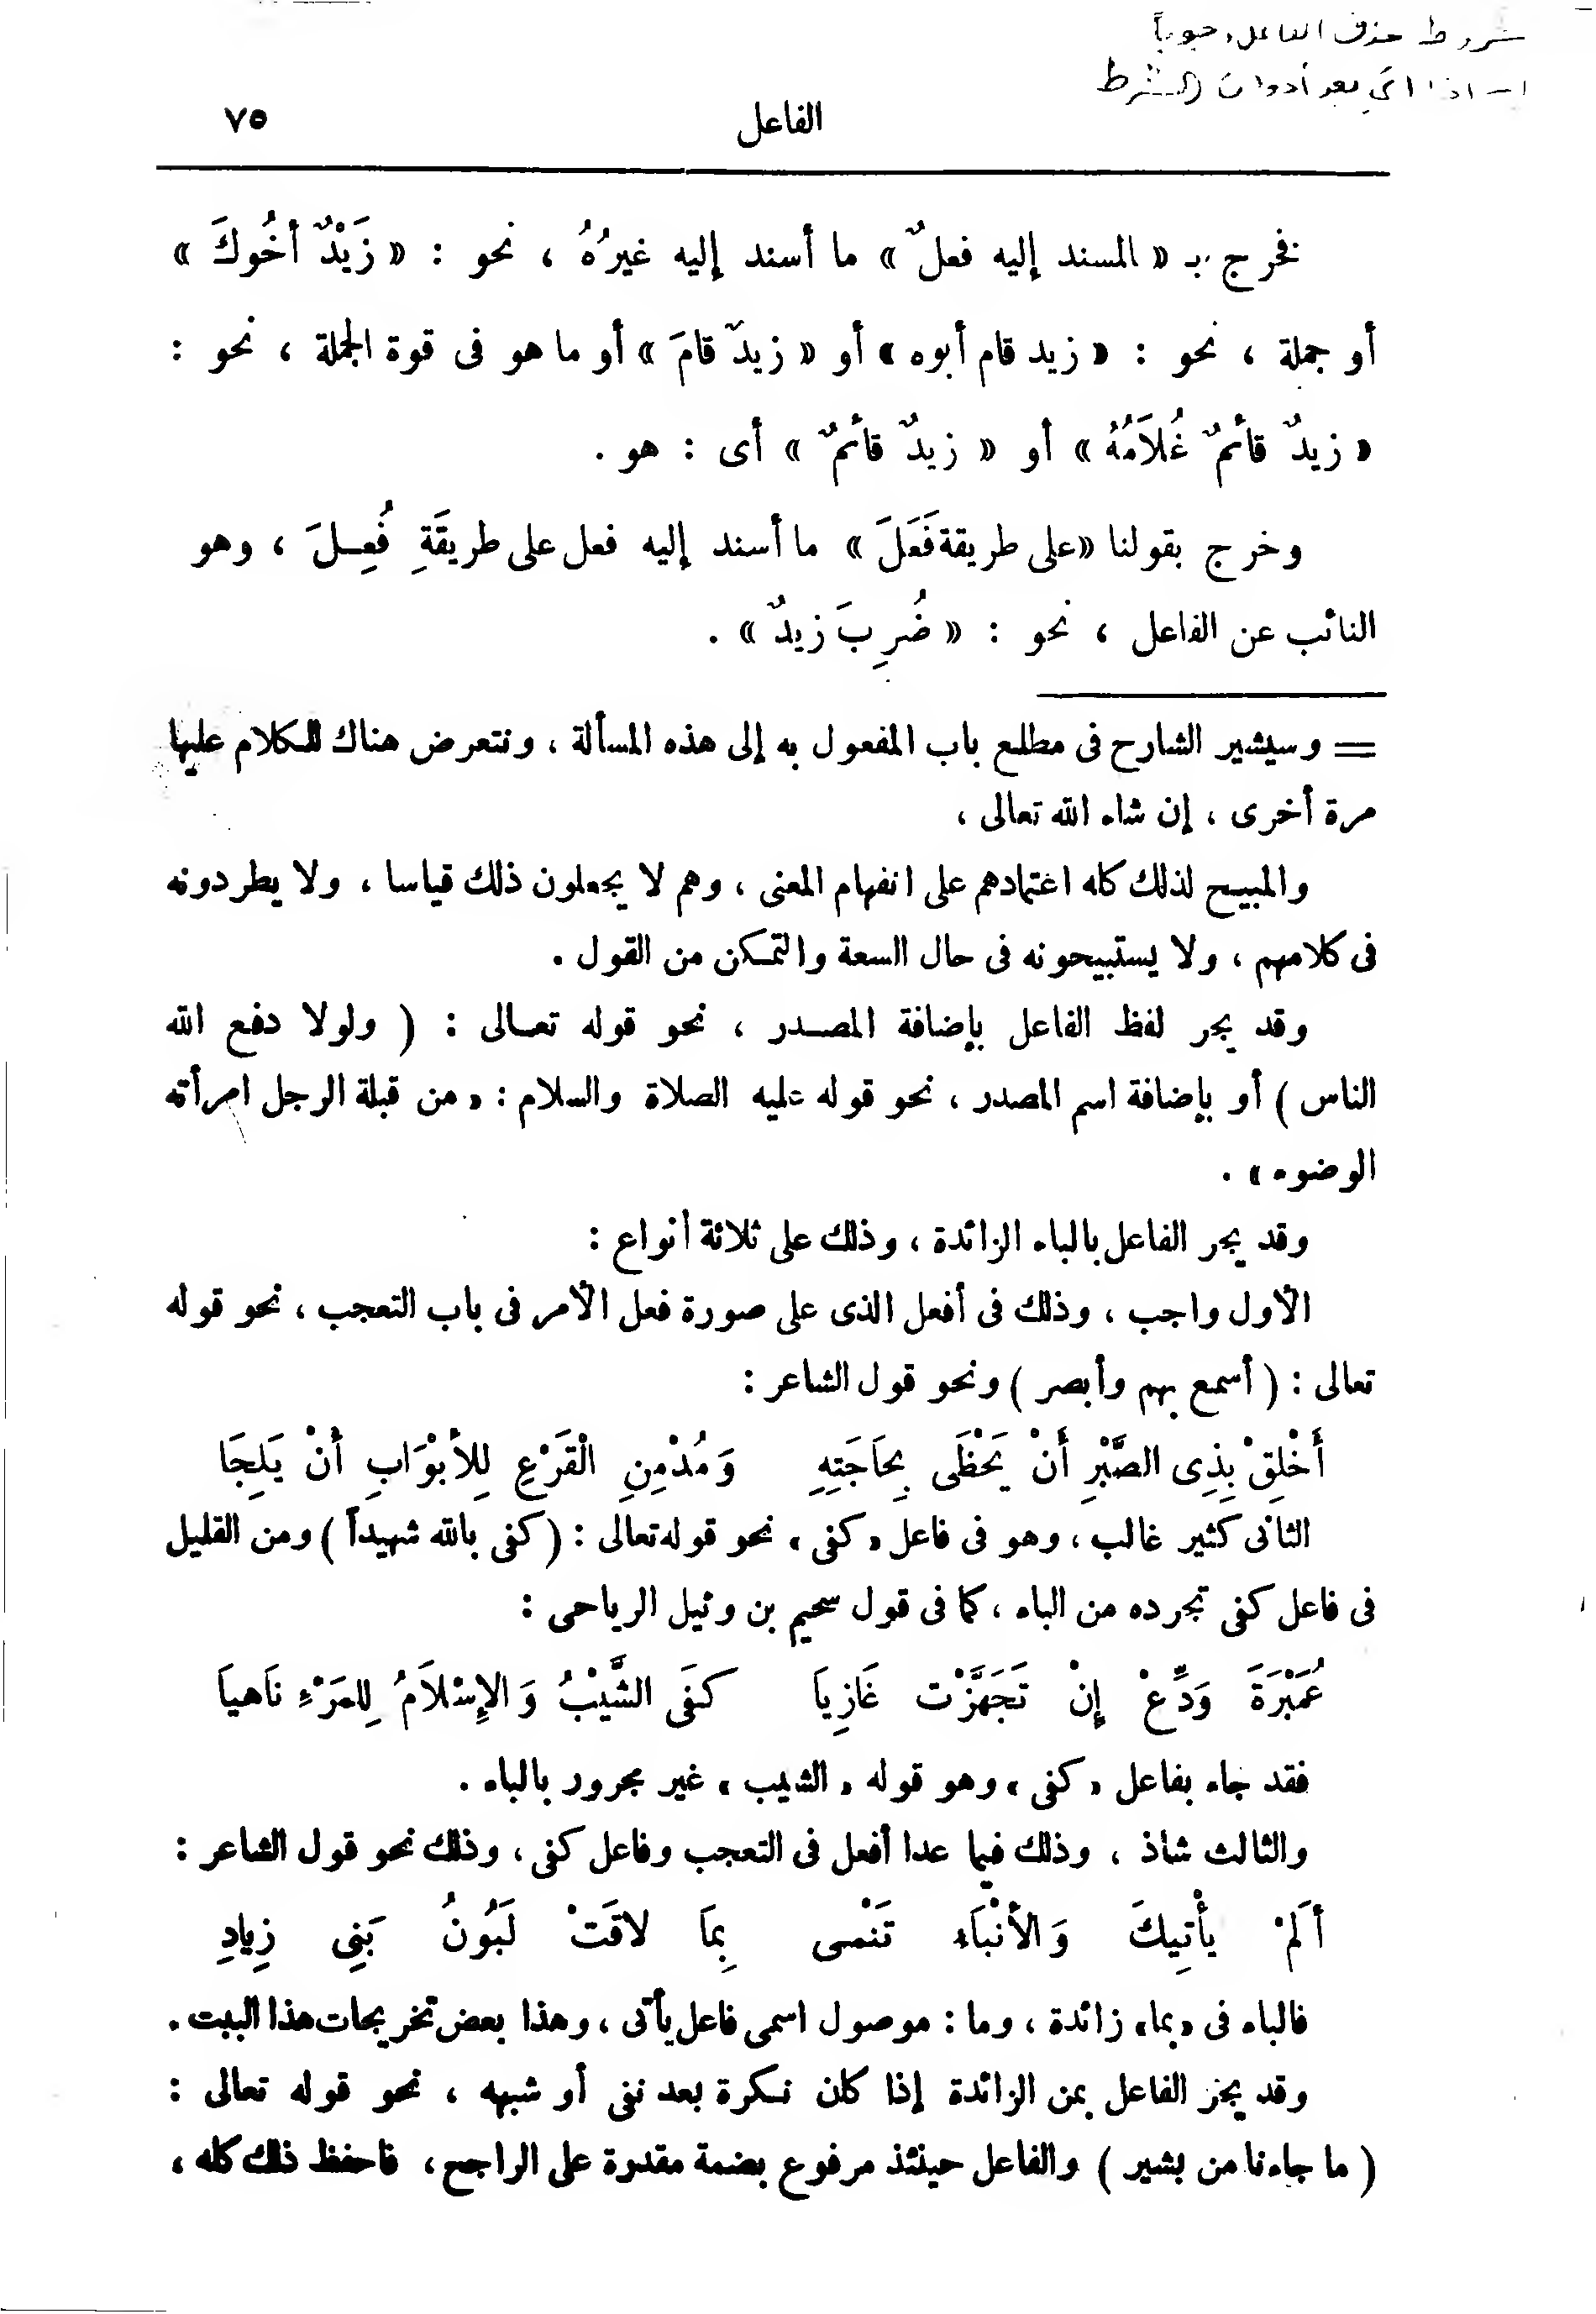 شروط حذف الفاعل وجوباً
١- اذا اتى بعد أدوات الشرط
الفاعل ٧٥
فخرج بـ « المسند إليه فعلٌ » ما أسند إليه غيرُهُ ، نحو : « زَيْدٌ أخُوكَ »
أو جملة ، نحو : « زيد قام أبوه » أو « زيدٌ قامَ » أو ما هو فى قوة الجملة ، نحو :
« زيدٌ قائمٌ غُلاَمُهُ » أو « زيدٌ قائمٌ » أى : هو .
وخرج بقولنا « على طريقة فَعَلَ » ما أسند إليه فعل على طريقَةِ فُعِـلَ ، وهو
النائب عن الفاعل ، نحو : « ضُرِبَ زيدٌ » .
= وسيشير الشارح فى مطلع باب المفعول به إلى هذه المسألة ، ونتعرض هناك للكلام عليها
مرة أخرى ، إن شاء الله تعالى ،
والمبيح لذلك كله اعتمادهم على انفهام المعنى ، وهم لا يجعلون ذلك قياسا ، ولا يطردونه
فى كلامهم ، ولا يستبيحونه فى حال السعة والتمكن من القول .
وقد يجر لفظ الفاعل بإضافة المصـدر ، نحو قوله تعـالى : ( ولولا دفع الله
الناس ) أو بإضافة اسم المصدر ، نحو قوله عليه الصلاة والسلام : « من قبلة الرجل امرأته
الوضوء » .
وقد يجر الفاعل بالباء الزائدة ، وذلك على ثلاثة أنواع :
الأول واجب ، وذلك فى أفعل الذى على صورة فعل الأمر فى باب التعجب ، نحو قوله
تعالى : ( أسمع بهم وأبصر ) ونحو قول الشاعر :
أَخْلِقْ بِذِى الصَّبْرِ أَنْ يَحْظَى بِحَاجَتِهِ وَمُدْمِنِ الْقَرْعِ لِلأَبْوَابِ أَنْ يَلِجَا
الثانى كثير غالب ، وهو فى فاعل « كفى » نحو قوله تعالى : ( كفى بالله شهيداً ) ومن القليل
فى فاعل كفى تجرده من الباء ، كما فى قول سحيم بن وثيل الرياحى :
عُمَيْرَةَ وَدِّعْ إِنْ تَجَهَّزْت غَازِيَا كَفَى الشَّيْبُ وَالإِسْلاَمُ لِلمَرْءِ نَاهيَا
فقد جاء بفاعل « كفى » وهو قوله « الشيب » غير مجرور بالباء .
والثالث شاذ ، وذلك فيما عدا أفعل فى التعجب وفاعل كفى ، وذلك نحو قول الشاعر :
ألَمْ يأْتِيكَ وَالأنْبَاء تَنْمى بِمَا لاقَتْ لَبُونُ بَنِى زِيادِ
فالباء فى « بما » زائدة ، وما : موصول اسمى فاعل يأتى ، وهذا بعض تخريجات هذا البيت .
وقد يجر الفاعل بمن الزائدة إذا كان نـكرة بعد نفى أو شبهه ، نحو قوله تعالى :
( ما جاءنا من بشير ) والفاعل حينئذ مرفوع بضمة مقدرة على الراجح ، فاحفظ ذلك كله ،